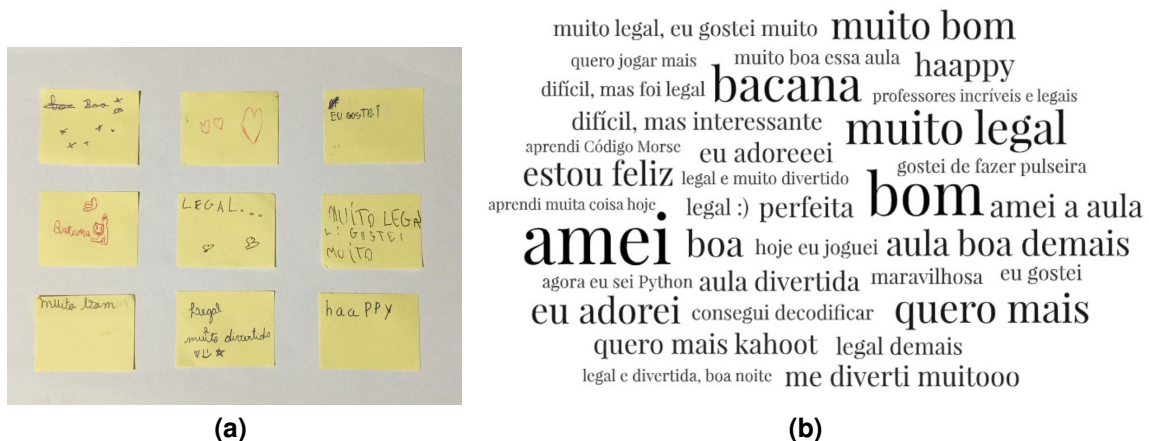 Boa
EU GOSTEI
Bacana
LEGAL...
MUITO LEGA
L! GOSTEI
MUITO
muito bom
Legal
muito divertido
haaPPY
(a)
muito legal, eu gostei muito muito bom
quero jogar mais muito boa essa aula haappy
difícil, mas foi legal bacana professores incríveis e legais
difícil, mas interessante muito legal
aprendi Código Morse eu adoreeei gostei de fazer pulseira
estou feliz legal e muito divertido bom
aprendi muita coisa hoje legal :) perfeita amei a aula
amei boa hoje eu joguei aula boa demais
agora eu sei Python aula divertida maravilhosa eu gostei
eu adorei consegui decodificar quero mais
quero mais kahoot legal demais
legal e divertida, boa noite me diverti muitooo
(b)